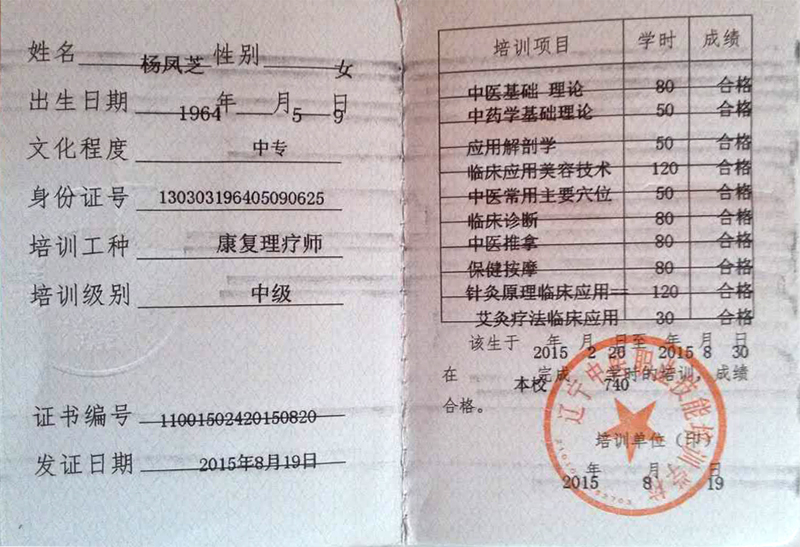 姓名 杨凤芝 性别 女
出生日期 1964年 5月 9日
文化程度 中专
身份证号 130303196405090625
培训工种 康复理疗师
培训级别 中级
证书编号 11001502420150820
发证日期 2015年8月19日
培训项目 学时 成绩
中医基础 理论 80 合格
中药学基础理论 50 合格
应用解剖学 50 合格
临床应用美容技术 120 合格
中医常用主要穴位 50 合格
临床诊断 80 合格
中医推拿 80 合格
保健按摩 80 合格
针灸原理临床应用== 120 合格
艾灸疗法临床应用 30 合格
该生于 2015年 2月 20日至 2015年 8月 30日
在 本校 完成 740 学时的培训，成绩
合格。
培训单位（印）
2015年 8月 19日
辽宁中医职业技能培训学校